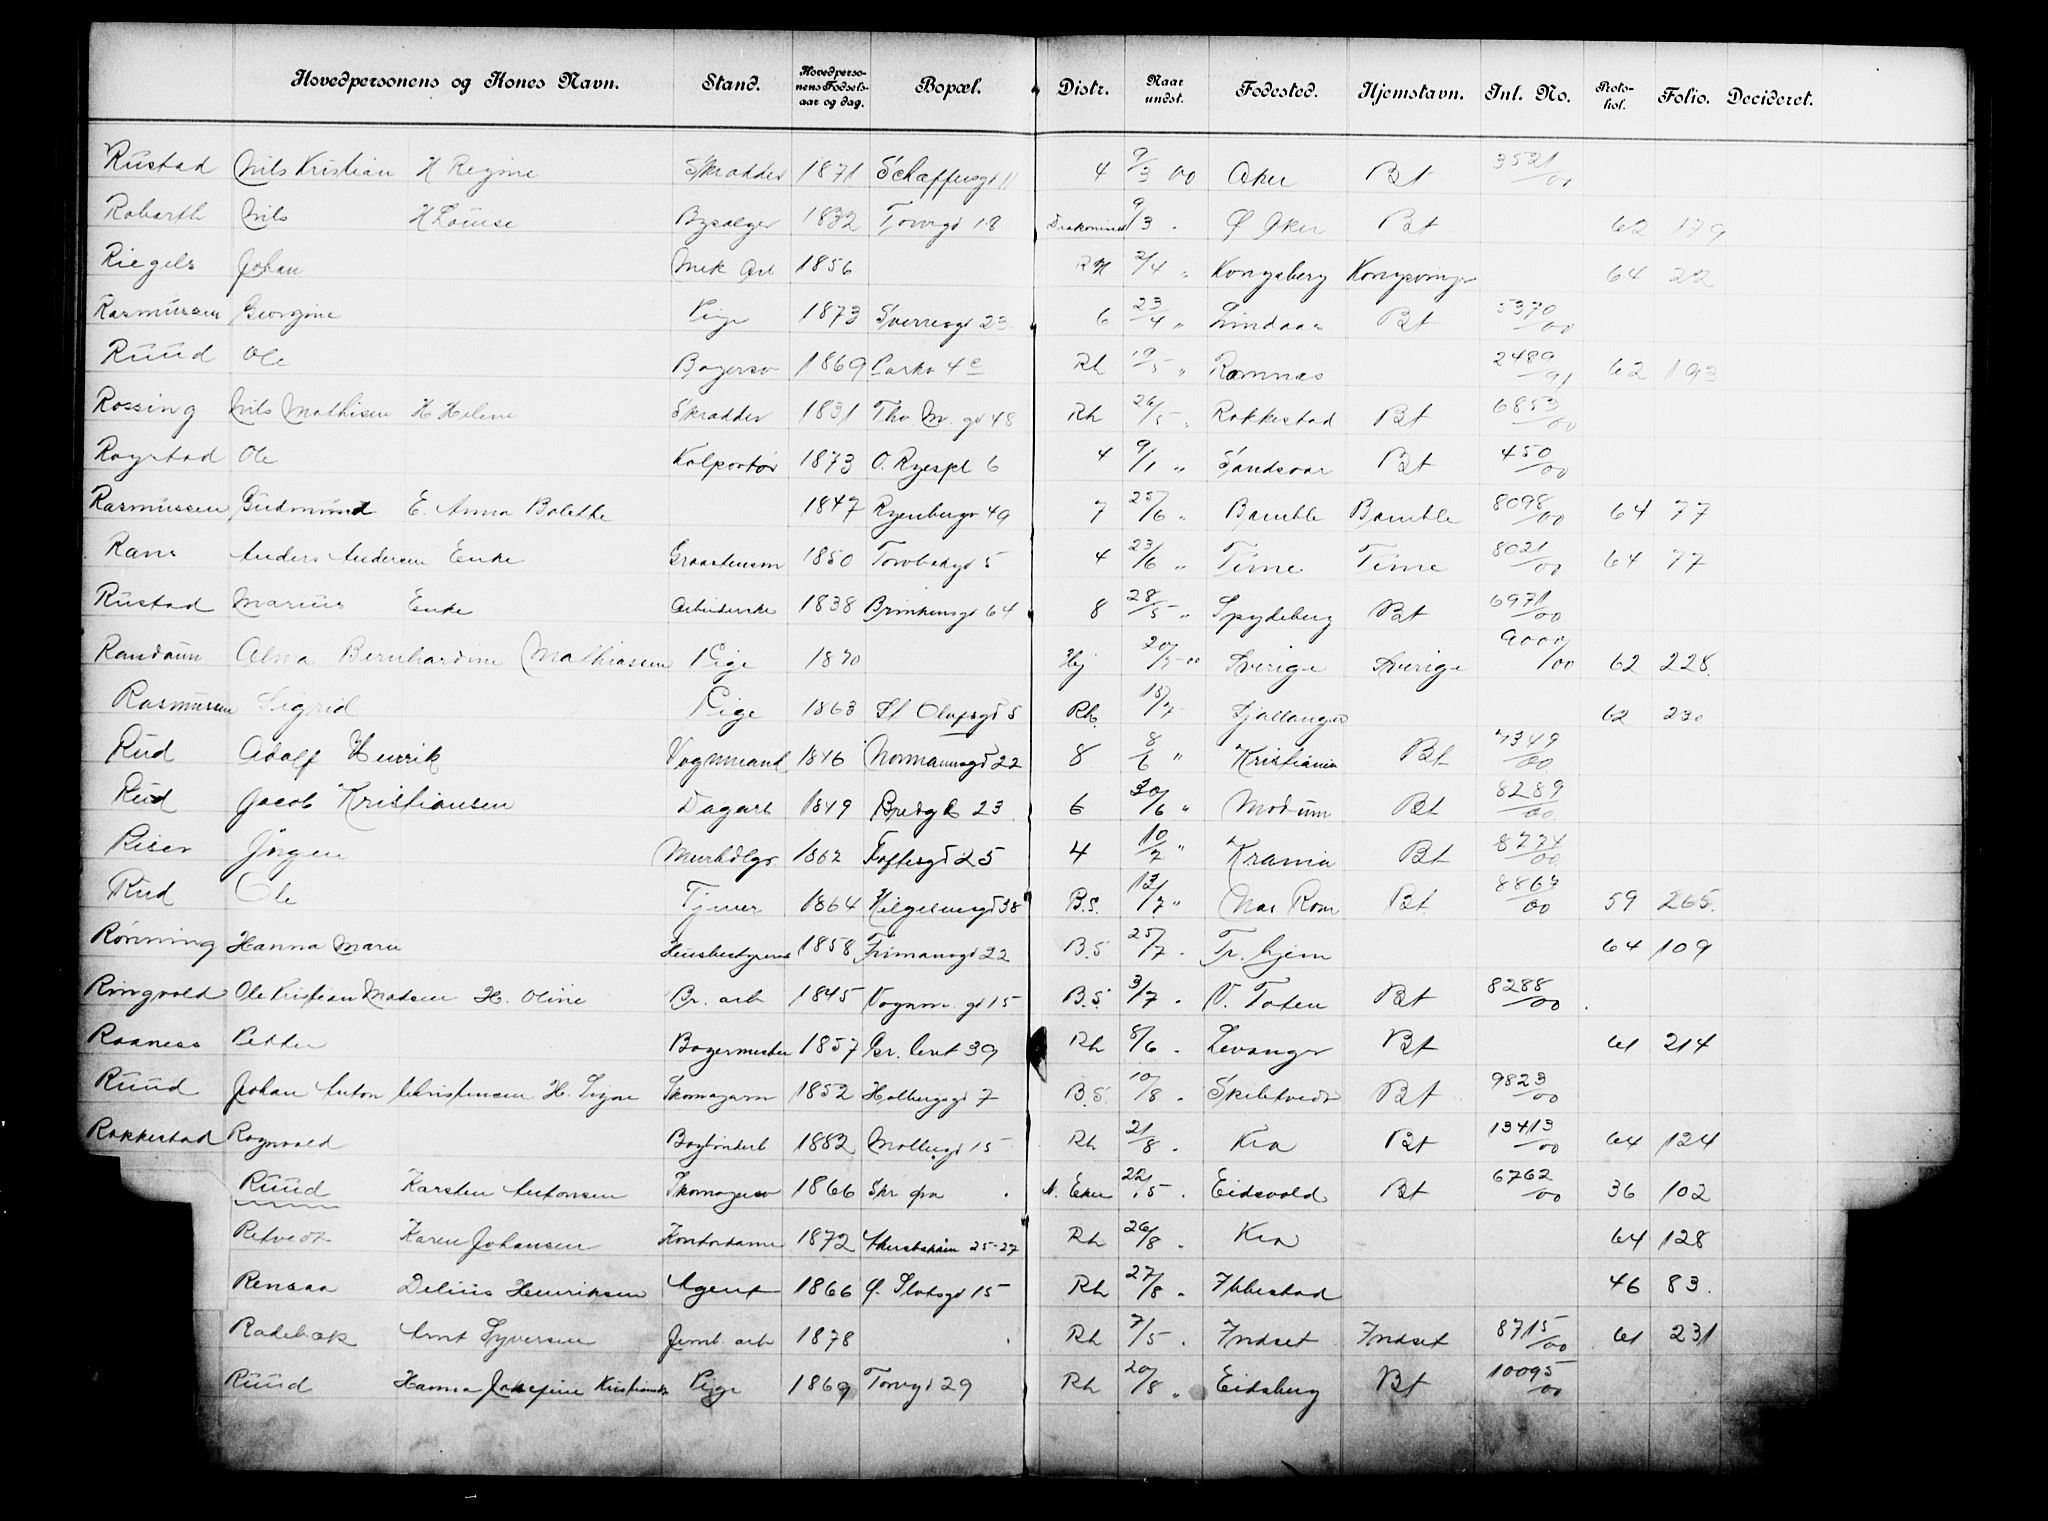 Hovedpersonens og Kones Navn. Stand. Hovedpersonens Fødselsaar og dag. Bopæl. Distr. Naar undst. Fødested. Hjemstavn. Int. No. Protokol. Folio. Decideret.
Rustad Nils Kristian H Regine Skrædder 1871 Schaffersgt 11 4 9/3 00 Aker Bt 3521/00
Robarth Nils H Louise Bysælger 1832 Torvgt 18 9/3 Ø Aker Bt 62 179
Riegels Johan Mek Arb 1856 RH 2/4 " Kongsberg Kongsvinger 64 22
Rasmussen Georgine Pige 1873 Sverresgt 23 6 23/4 " Lindaas Bt 5370/00
Ruud Ole Bagersv 1869 Parkv 4c Rh 19/5 " Ramnæs 2489/91 62 193
Rossing Nils Mathisen H Helene Skrædder 1831 Thv M. gt 48 Rh 26/5 " Rakkestad Bt 6853/00
Røystad Ole Kolportør 1873 O. Ryespl 6 4 9/1 " Sandsvær Bt 450/00
Rasmussen Gudmund E. Anna Bolethe 1847 Ryenbergv 49 7 25/6 " Bamble Bamble 8098/00 64 77
Rani Anders Andersen Enke 1850 Torvbakgt 5 4 23/6 " Time Time 8021/00 64 77
Rustad Marius Enke Arbeiderske 1838 Brinkensgt 64 8 28/5 " Spydeberg Bt 6971/00
Randaun Alma Bernhardine Mathiasen Pige 1870 20/7 00 Sverige Sverige 9007/00 62 228.
Rasmussen Sigrid Pige 1863 St Olafsgt 5 Rh. 15/7 62 230
Rud Adolf Henrik Vognmand 1846 Normannsgt 22 8 8/6 " Kristiania Bt 7349/00
Rud Jacob Kristiansen Dagarb 1849 Bredgt 23 6 30/6 " Modum Bt 8289/00
Riser Jørgen Murhdlgr 1862 Toftesgt 25 4 10/7 " Krania Bt 8774/00
Rud Ole Tjener 1864 Helgesensgt 38 B.S. 13/7 " Næs Rom Bt 8867/00 59 265.
Rønning Hanna Marie Husbestyrerinde 1858 Frimansgt 22 B.S 25/7 . Tr. hjem 64 109
Ringvold Ole Kristian Madsen H. Oline Br. arb 1845 Vognm. gt 15 B.S. 3/7 . V. Toten Bt 8288/00
Raaness Petter Bagermester 1857 Gr. lens 39 Rh 8/6 . Levanger Bt 61 214
Ruud Johan Anton Christensen H. Signe Skomagerm 1852 Holbergsgt 7 B.S. 10/8 . Skibtvedt Bt 9823/00
Rakkestad Ragnvald Bogbinderl 1882 Møllergt 15 Rh 21/8 . Kra Bt 13413/00 64 124
Ruud Karsten Antonsen Skomagersv 1866 22/5 . Eidsvold Bt 6762/00 36 102
Retvedt Karen Johansen Kontordame 1872 Akersbakken 25-27 Rh 26/8 . Kra 64 128
Rensaa Delius Henriksen Agent 1866 Ø. Slotsgt 15 Rh 27/8 . Ibbestad 46 83.
Rødebæk Arnt Syversen Jernb. arb 1878 Rh 7/5 . Indset Indset 8715/00 61 231
Ruud Hanna Josefine Kristiansen Pige 1869 Torvgt 29 Rh 20/8 " Eidsberg Bt 10095/00